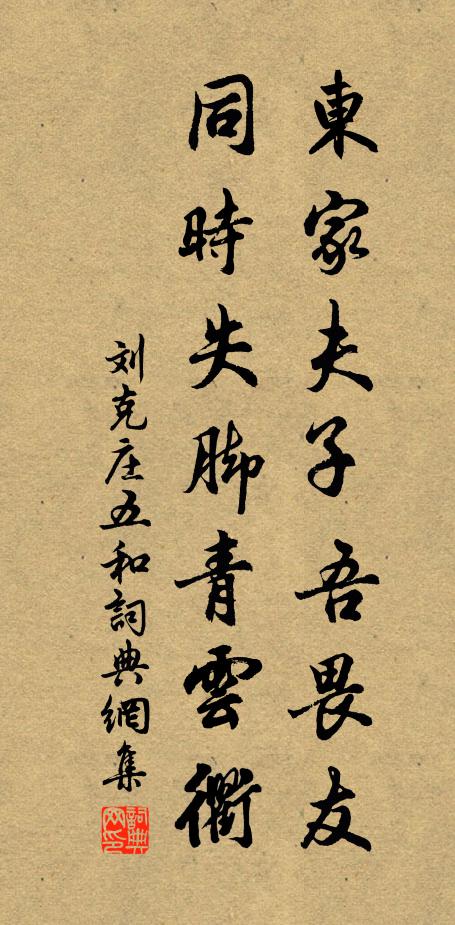 東家夫子吾畏友
同時失脚青雲衢
刘克庄五和詞典網集
詞典网印